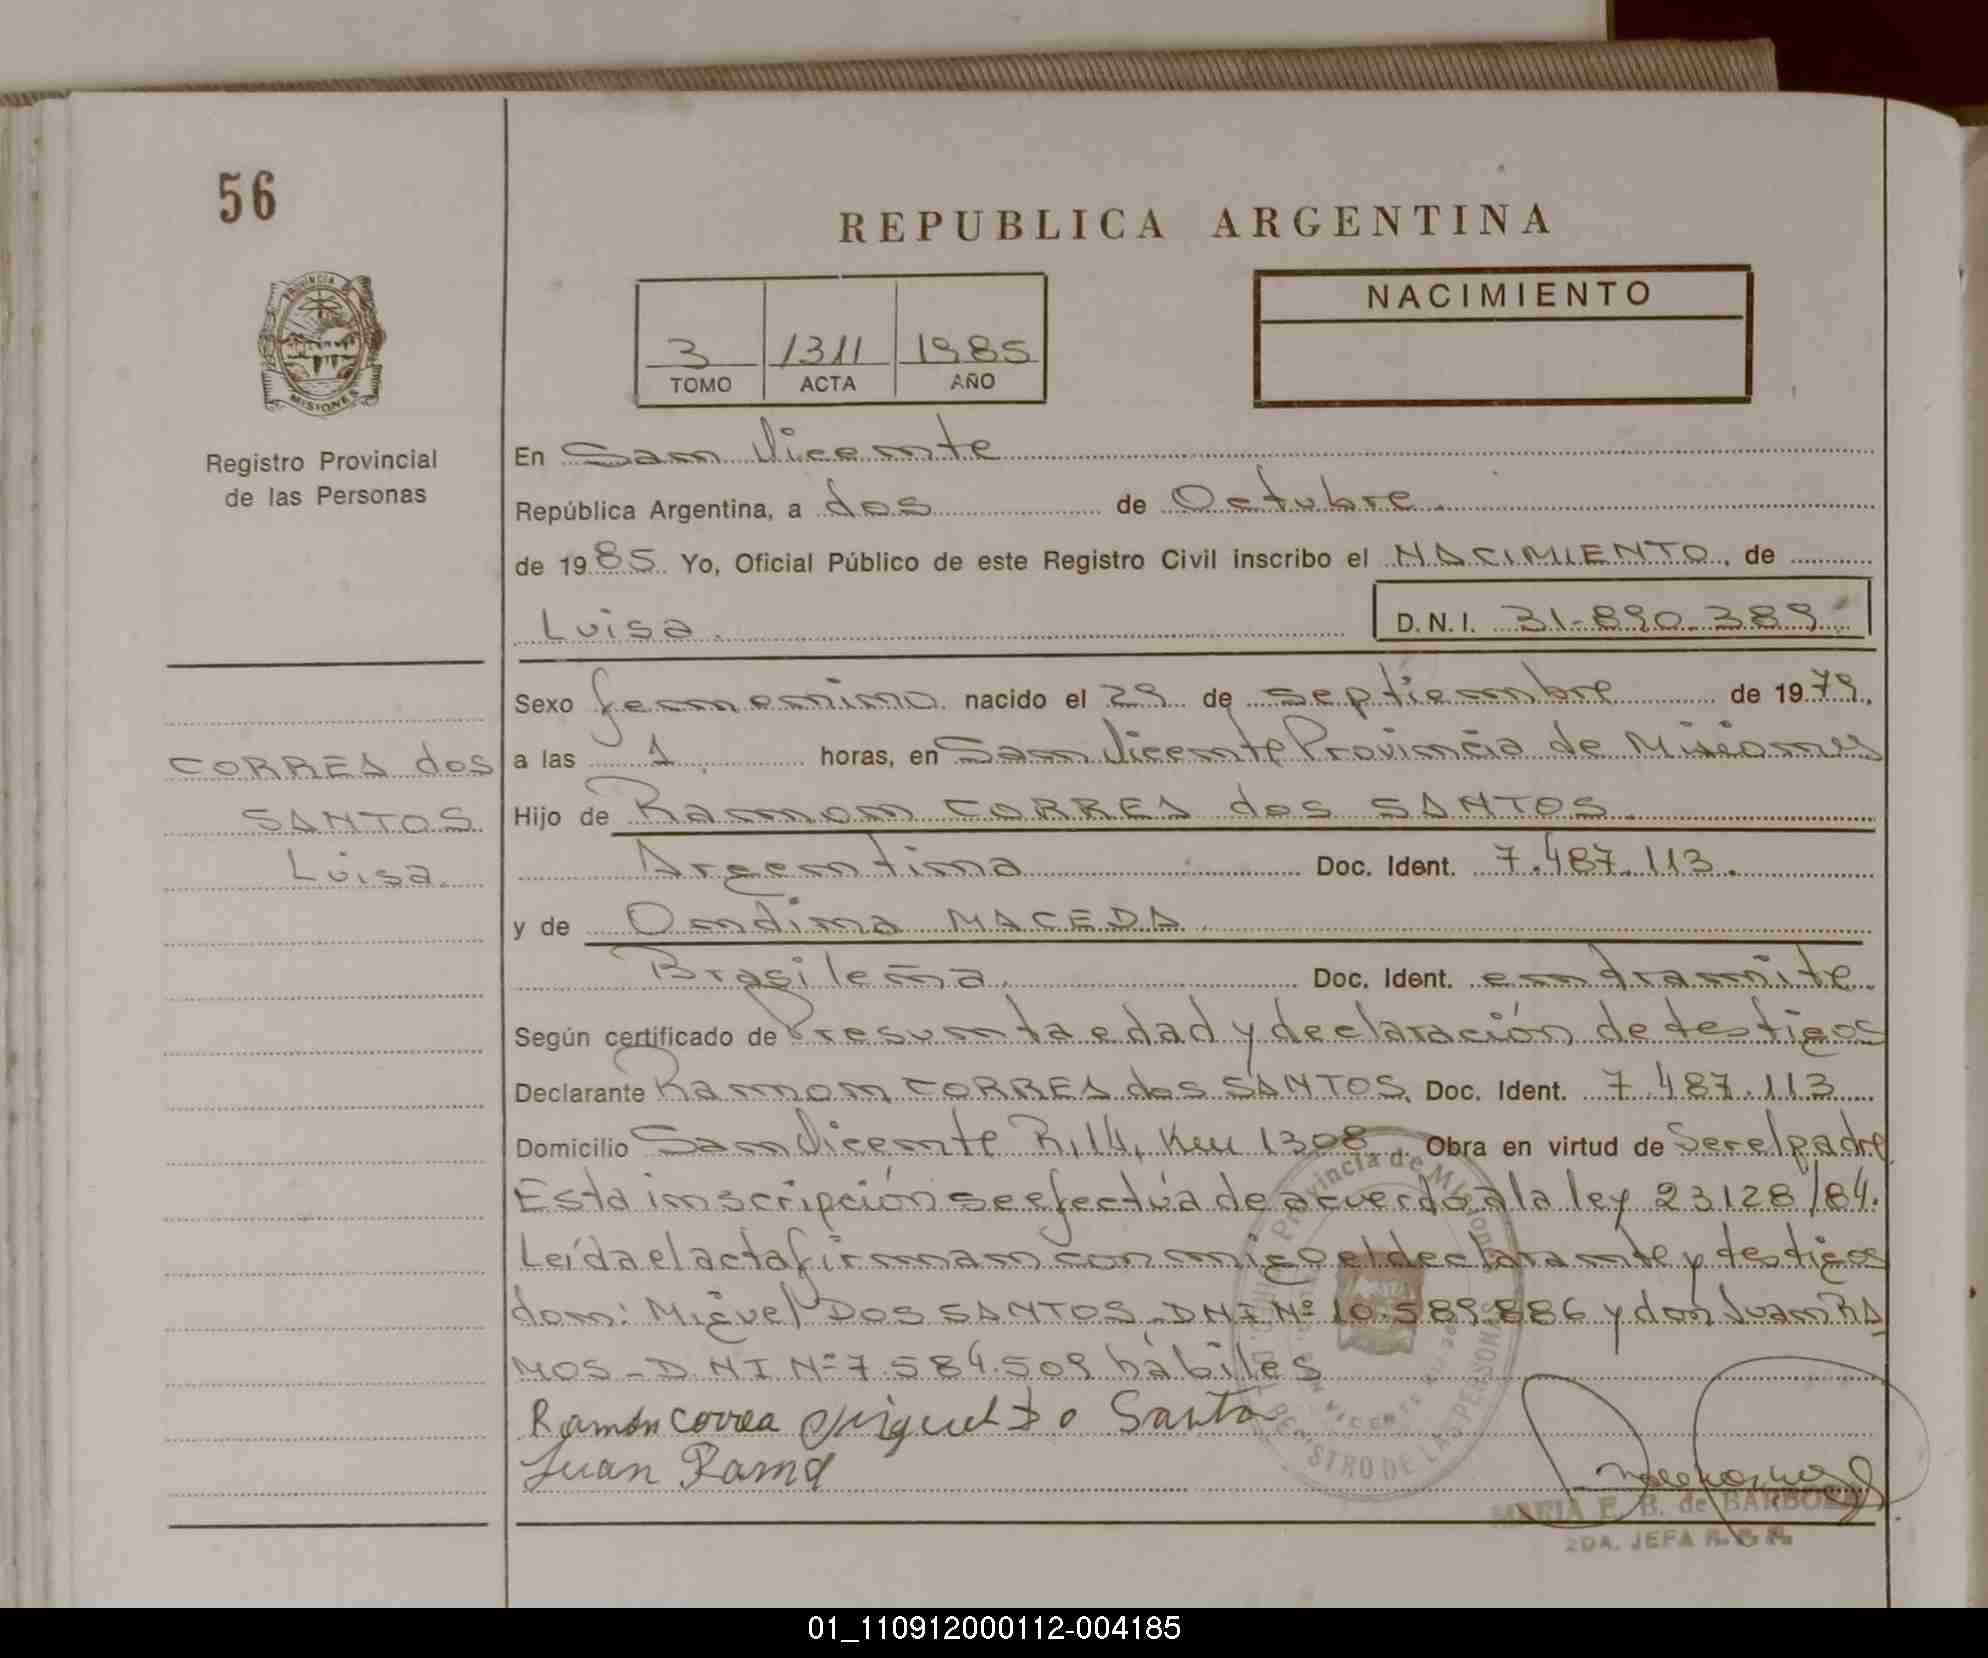 56
REPUBLICA ARGENTINA
PROVINCIA
MISIONES
Registro Provincial
de las Personas
3 1311 1985
TOMO ACTA AÑO
NACIMIENTO
En San Vicente
República Argentina, a dos de Octubre
de 1985 Yo, Oficial Público de este Registro Civil inscribo el NACIMIENTO, de
Luisa. D.N.I. 31-890.389
Sexo femenino nacido el 29 de septiembre de 1979,
CORREA dos
SANTOS
Luisa.
a las 1 horas, en San Vicente Provincia de Misiones
Hijo de Ramon CORREA dos SANTOS.
Argentina Doc. Ident. 7.487.113.
y de Ondina MACEDA
Brasileña. Doc. Ident. en tramite.
Según certificado de Presunta edad y declaración de testigos
Declarante Ramon CORREA dos SANTOS. Doc. Ident. 7.487.113
Domicilio San Vicente R.14, Km 1308. Obra en virtud de Ser el padre
Esta inscripción se efectúa de acuerdo a la ley 23128/84.
Leída el acta firman conmigo el declarante y testigos
don: Miguel DOS SANTOS - DNI Nº 10.589.886 y don Juan RA
MOS - DNI Nº 7.584.509 hábiles
Ramón Correa Miguel do Santo
Juan Ramo
Provincia de Misiones
REGISTRO DE LAS PERSONAS
MARIA E. B. de BARBOZA
2DA. JEFA
01_110912000112-004185